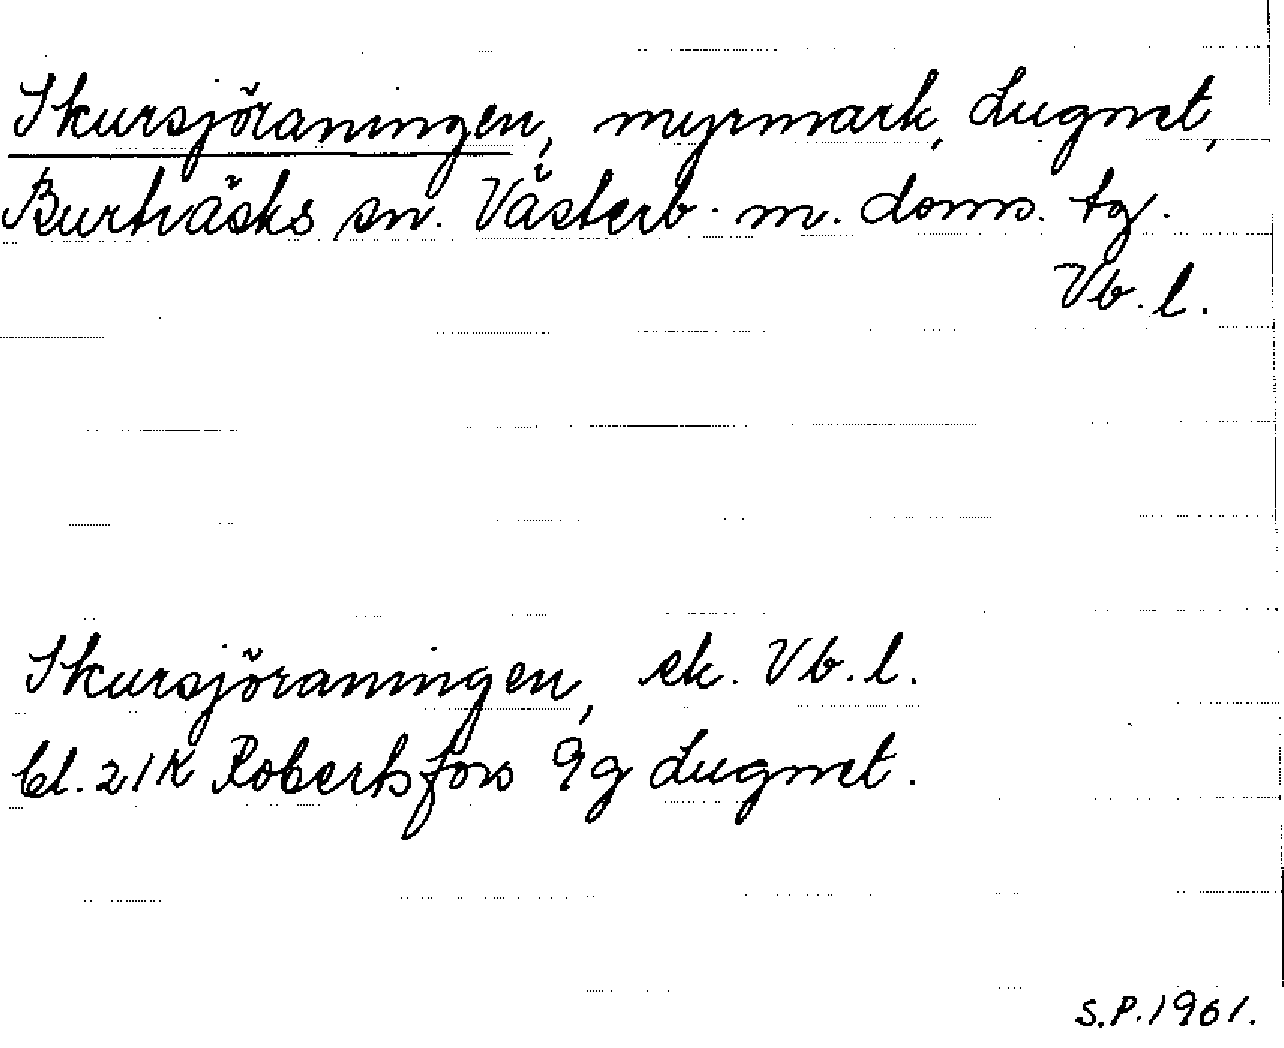 Skursjöraningen, myrmark, Lugnet,
Burträsks sn. Västerb. m. doms. tg.
Vb. l.
Skursjöraningen, ek. Vb. l.
bl. 21K Robertsfors 9g Lugnet.
S.P. 1961.